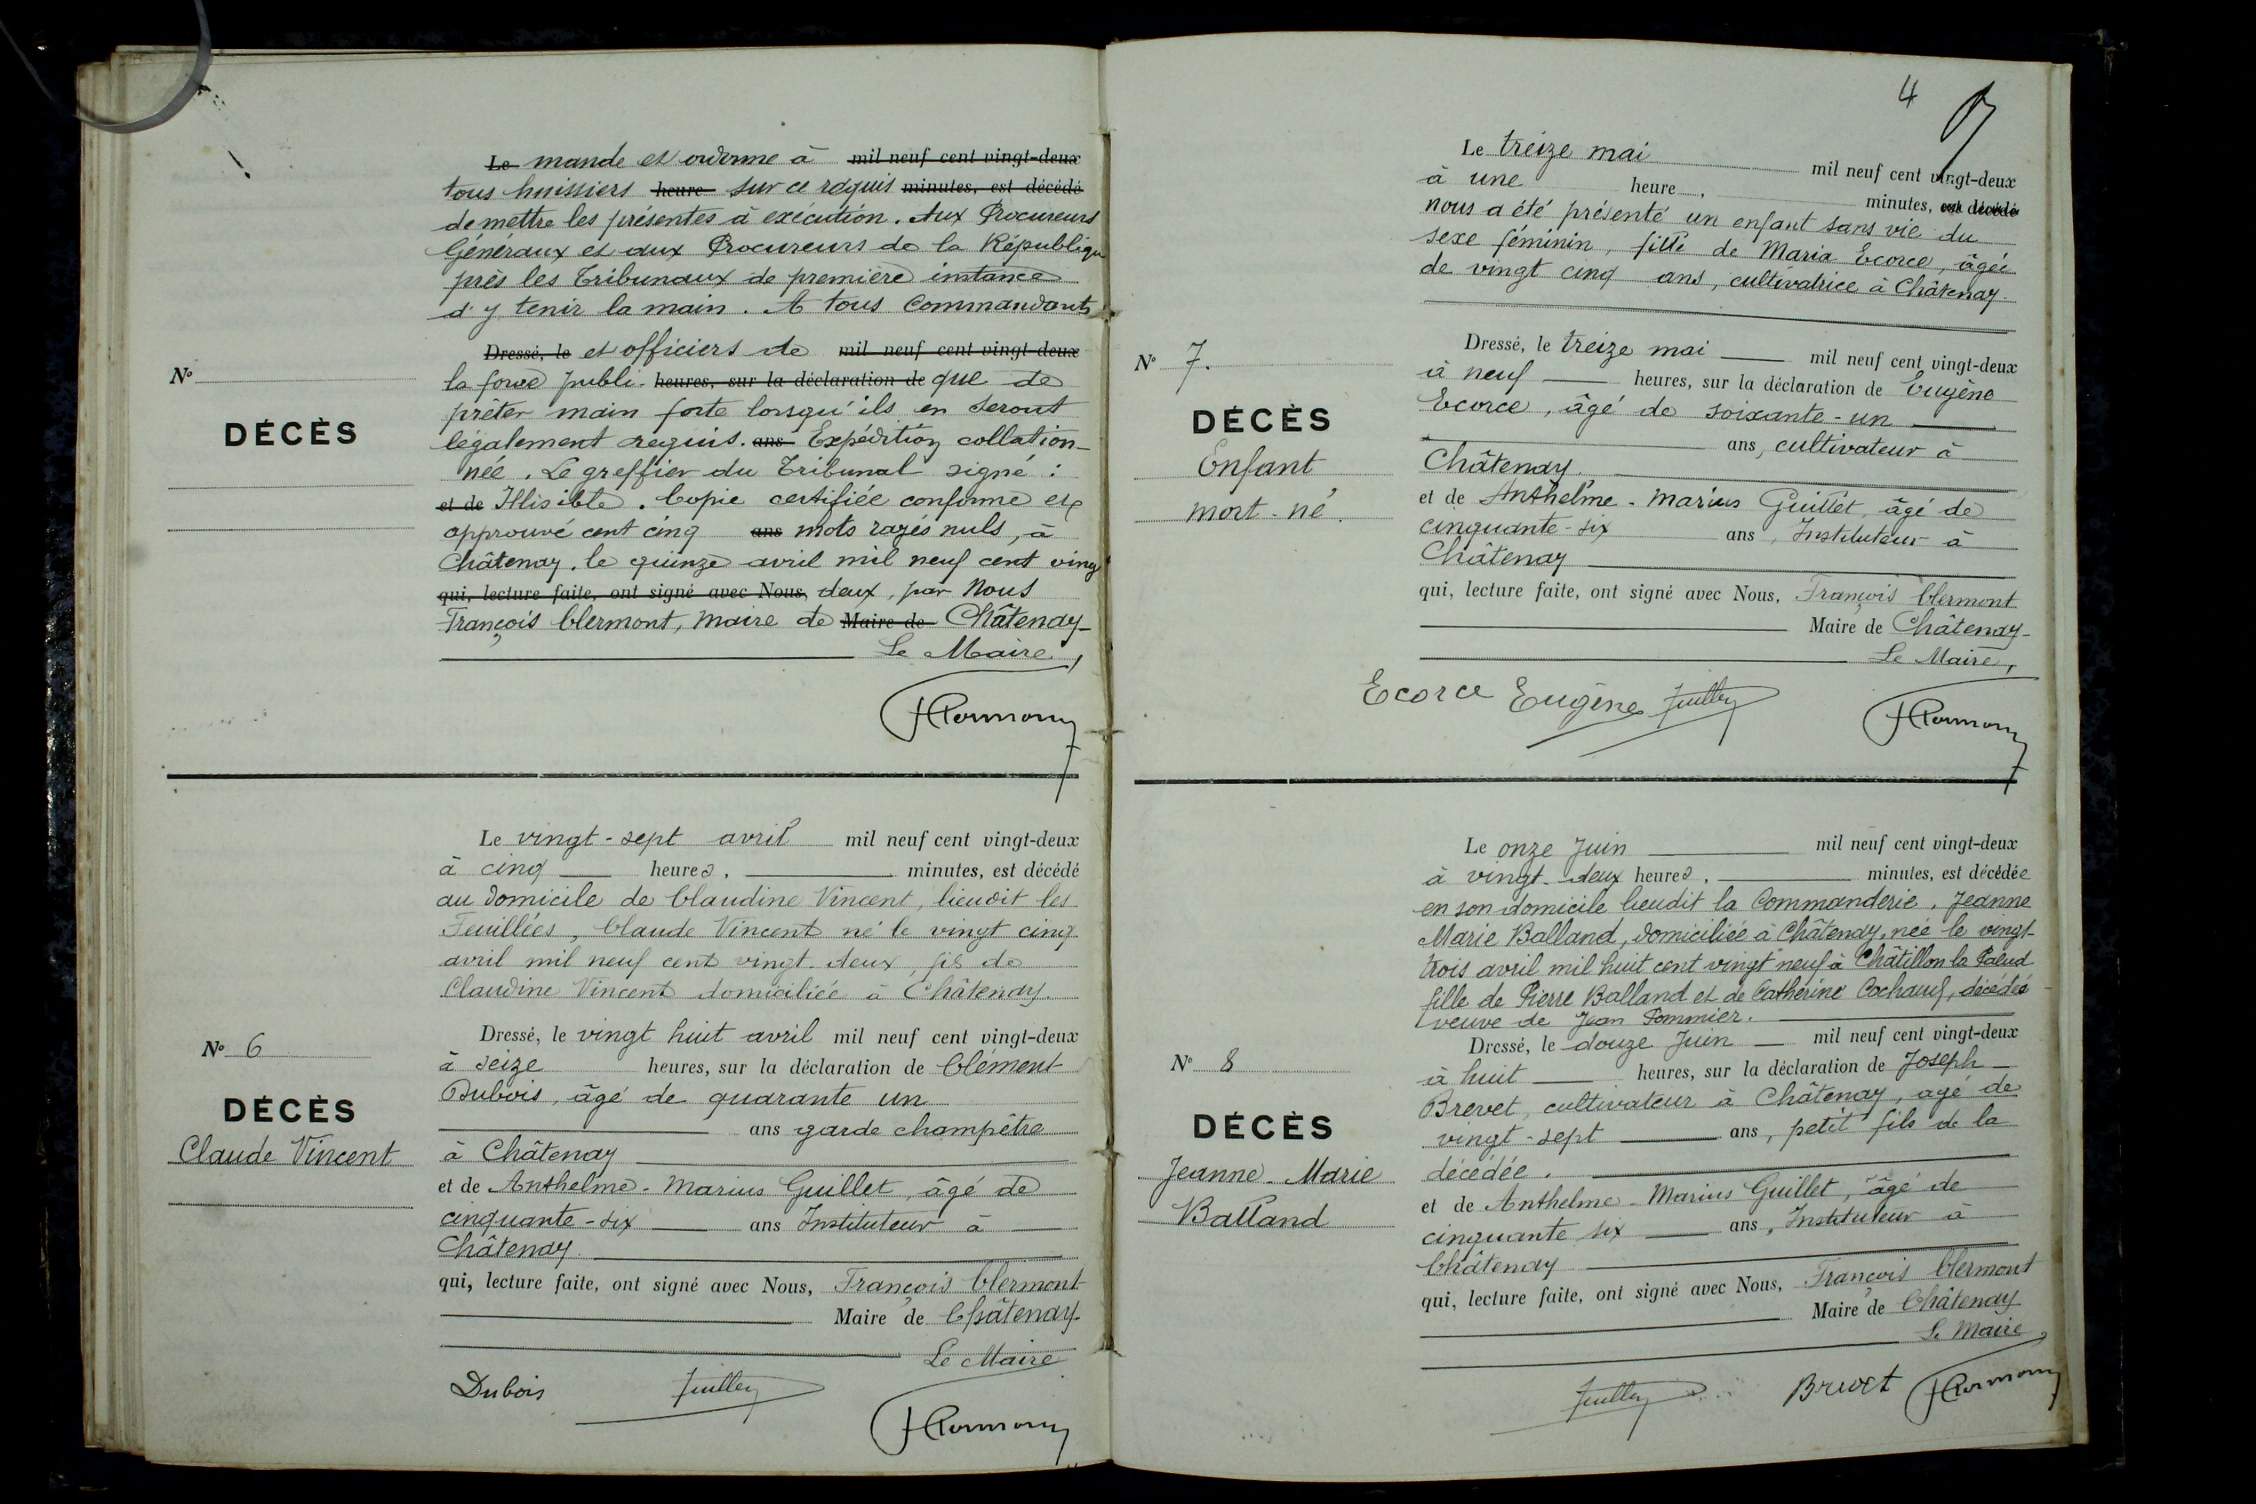 Le mande et ordonne à mil neuf cent vingt-deux
tous huissiers heure sur ce requis minutes, est décédé
de mettre les présentes à exécution. Aux Procureurs
Généraux et aux Procureurs de la République
près les Tribunaux de première instance
d'y tenir la main. A tous Commandants
Dressé, le et officiers de mil neuf cent vingt-deux
la force publi- heures, sur la déclaration de que de
prêter main forte lorsqu'ils en seront
légalement requis. ans Expédition collation-
née. Le greffier du Tribunal signé :
et de Illisible. Copie certifiée conforme et
approuvé cent cinq ans mots rayés nuls, à
Châtenay, le quinze avril mil neuf cent ving
qui, lecture faite, ont signé avec Nous, deux, par Nous
François Clermont, Maire de Maire de Châtenay-
Le Maire,
FClermont
N°
DÉCÈS
Le vingt-sept avril mil neuf cent vingt-deux
à cinq heures, minutes, est décédé
au domicile de Claudine Vincent, lieudit les
Feuillées, Claude Vincent né le vingt cinq
avril mil neuf cent vingt-deux, fils de
Claudine Vincent domiciliée à Châtenay.
Dressé, le vingt huit avril mil neuf cent vingt-deux
à seize heures, sur la déclaration de Clément
Dubois, âgé de quarante un
ans garde champêtre
à Châtenay
et de Anthelme-Marius Guillet, âgé de
cinquante-six ans Instituteur à
Châtenay
qui, lecture faite, ont signé avec Nous, François Clermont
Maire de Châtenay.
Le Maire
Dubois Guillet
FClermont
N° 6
DÉCÈS
Claude Vincent
4
Le treize mai mil neuf cent vingt-deux
à une heure, minutes, est décédé
nous a été présenté un enfant sans vie du
sexe féminin, fille de Maria Ecorce, âgée
de vingt cinq ans, cultivatrice à Châtenay.
Dressé, le treize mai mil neuf cent vingt-deux
à neuf heures, sur la déclaration de Eugène
Ecorce, âgé de soixante-un
ans, cultivateur à
Châtenay.
et de Anthelme-Marius Guillet, âgé de
cinquante-six ans, Instituteur à
Châtenay
qui, lecture faite, ont signé avec Nous, François Clermont
Maire de Châtenay-
Le Maire,
Ecorce Eugène Guillet
FClermont
N° 7.
DÉCÈS
Enfant
mort-né.
Le onze Juin mil neuf cent vingt-deux
à vingt-deux heures, minutes, est décédée
en son domicile lieudit la Commanderie, Jeanne
Marie Balland, domiciliée à Châtenay, née le vingt-
trois avril mil huit cent vingt neuf à Châtillon la Palud
fille de Pierre Balland et de Catherine Cochard, décédés
veuve de Jean Pommier.
Dressé, le douze Juin mil neuf cent vingt-deux
à huit heures, sur la déclaration de Joseph
Brevet, cultivateur à Châtenay, âgé de
vingt-sept ans, petit fils de la
décédée.
et de Anthelme-Marius Guillet, âgé de
cinquante six ans, Instituteur à
Châtenay
qui, lecture faite, ont signé avec Nous, François Clermont
Maire de Châtenay
Le Maire,
Guillet Brevet FClermont
N° 8
DÉCÈS
Jeanne-Marie
Balland